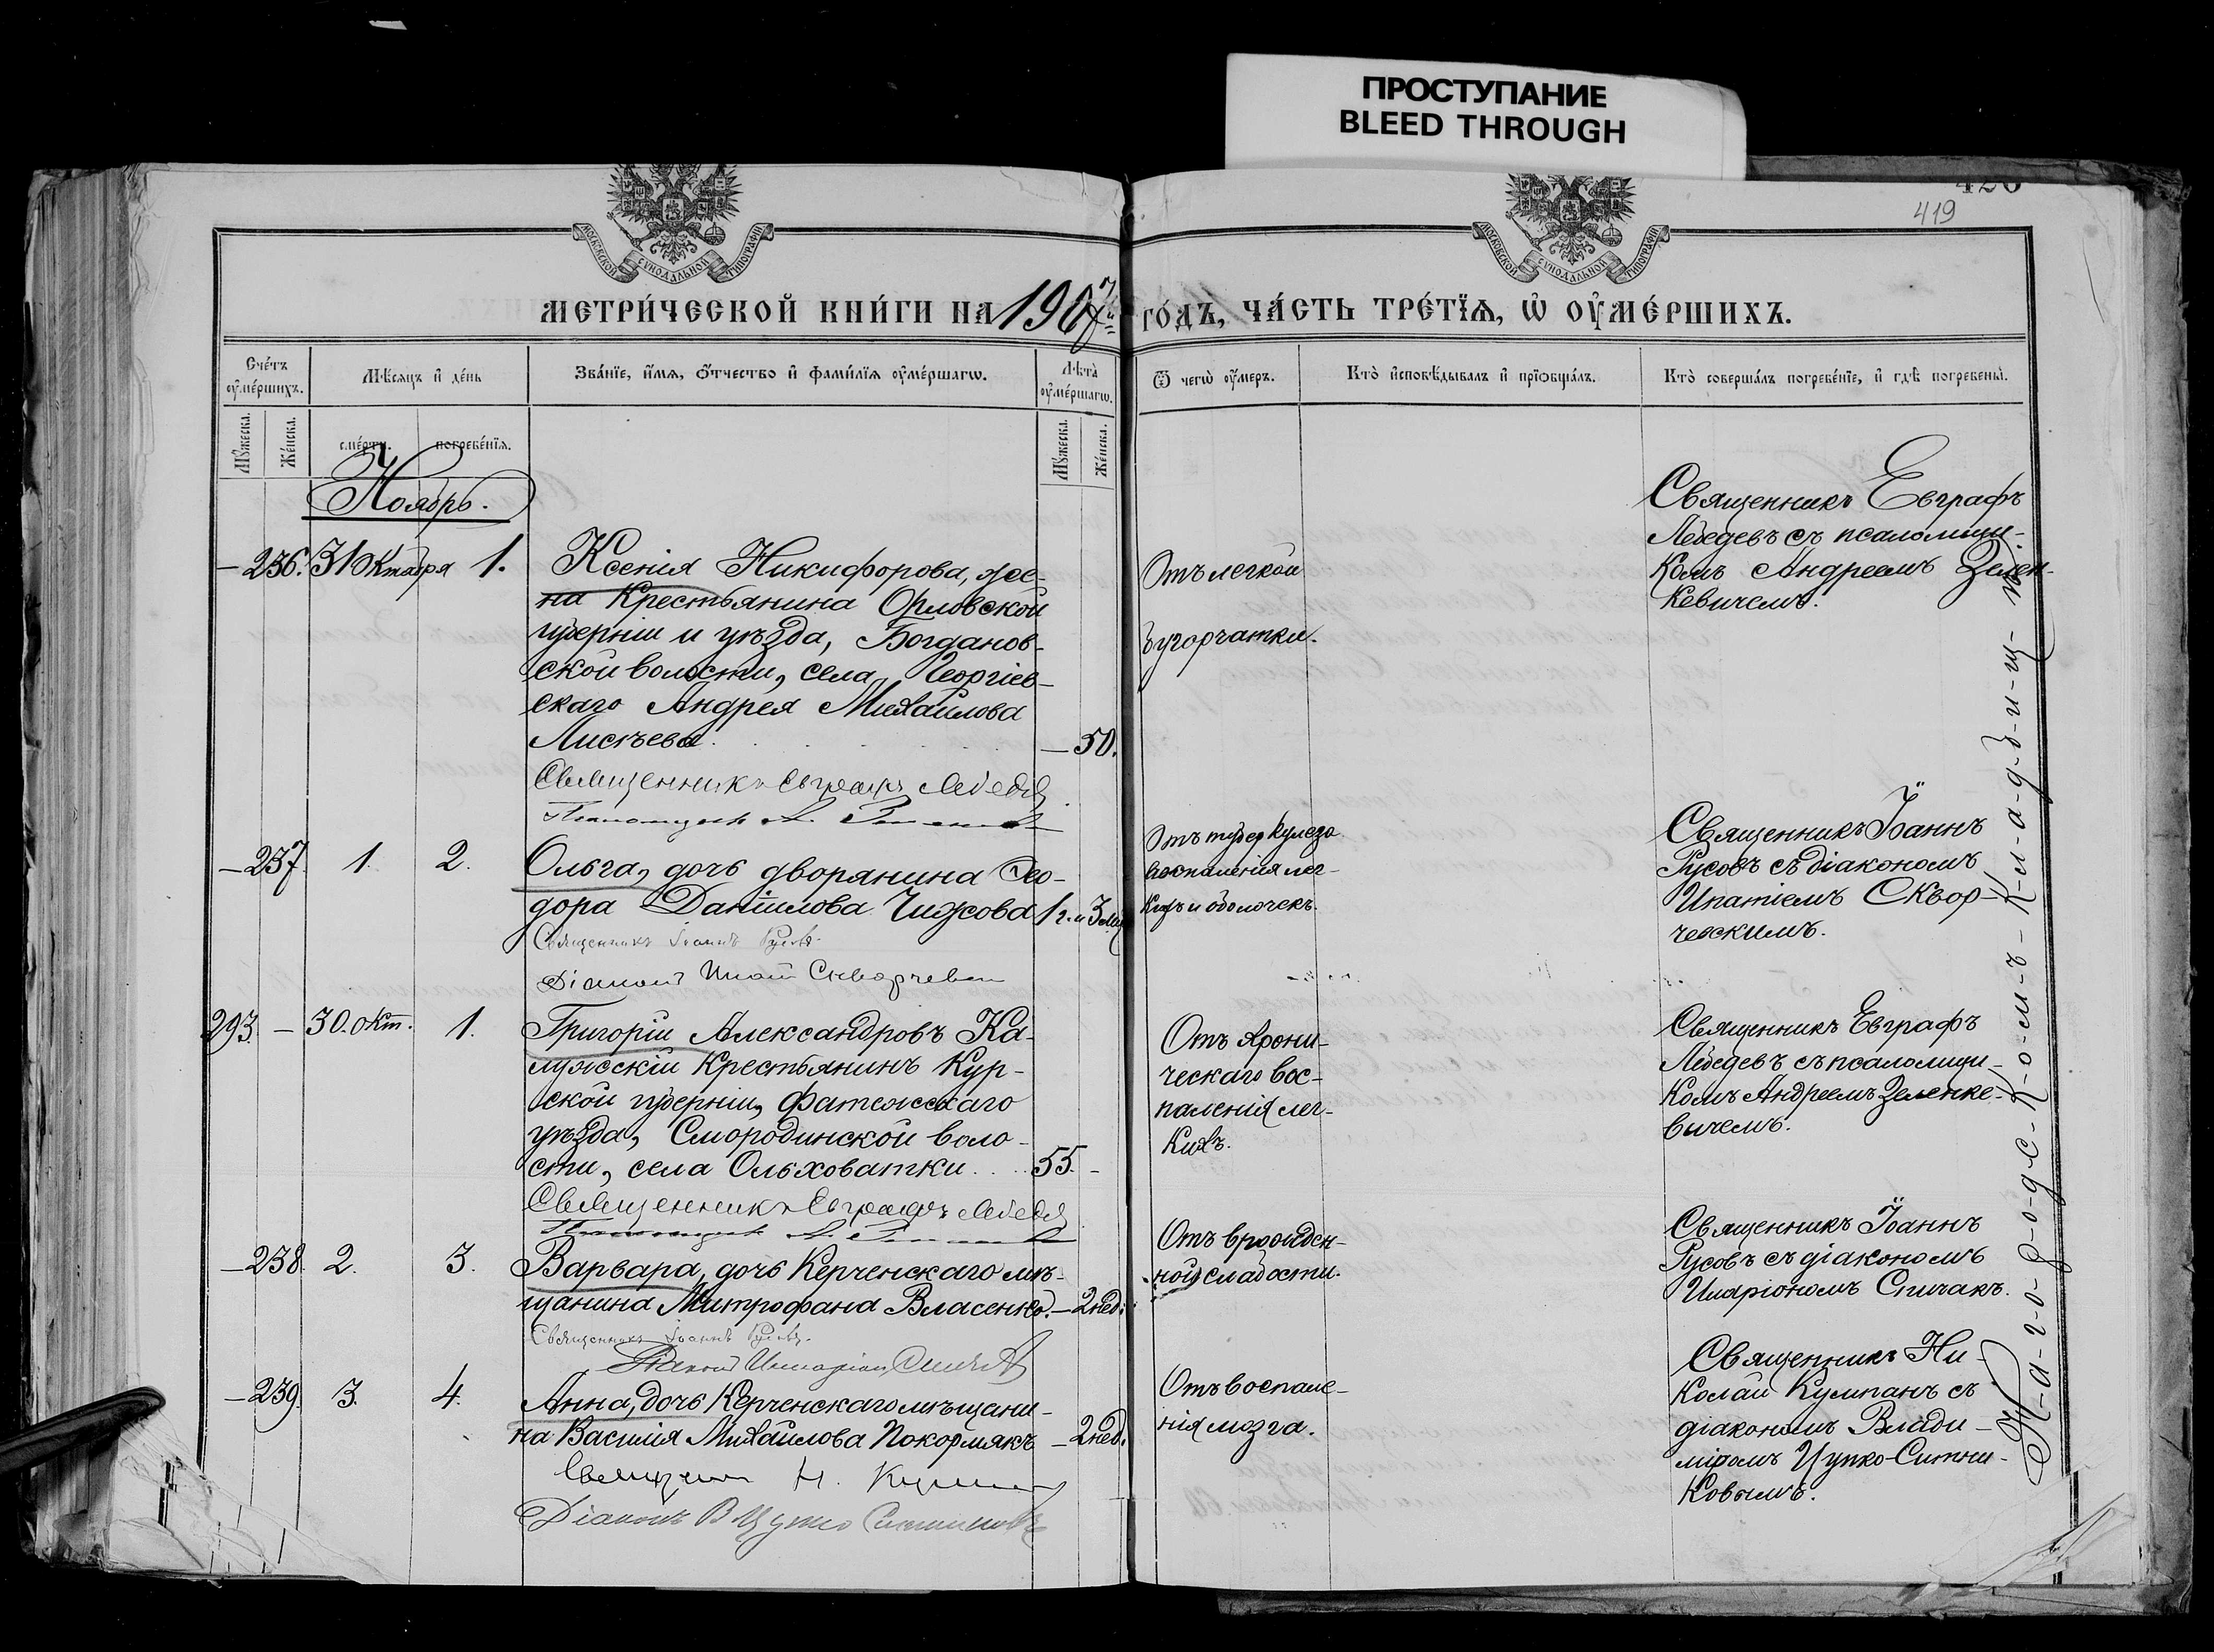 ПРОСТУПАНИЕ
BLEED THROUGH
419
МОСКОВСКОЙ СѴНОДАЛЬНОЙ ТИПОГРАФІИ
МОСКОВСКОЙ СѴНОДАЛЬНОЙ ТИПОГРАФІИ
МЕТРИ́ЧЕСКОЙ КНИ́ГИ НА 1907 й ГО́ДЪ, ЧА́СТЬ ТРЕ́ТЇѦ, Ѡ҆ ОУ҆МЕ́РШИХЪ.
Сче́тъ оу҆ме́ршихъ.
Мѣ́сяцъ и҆ де́нь
Зва́нїе, и҆́мѧ, ѻ҆́тчество и҆ фами́лїѧ оу҆ме́ршагѡ.
Лѣ́та оу҆ме́ршагѡ.
Ѿ чегѡ̀ оу҆́меръ.
Кто̀ и҆сповѣ́дывалъ и҆ прїѻбща́лъ.
Кто̀ соверша́лъ погребе́нїе, и҆ гдѣ̀ погребены̀.
Мꙋ́жеска.
Же́нска.
сме́рти.
погребе́нїѧ.
Мꙋ́жеска.
Же́нска.
Ноябрь.
— 236. 31 Октября 1.
Ксенія Никифорова, же-
на Крестьянина Орловской
губерніи и уѣзда, Богданов-
ской волости, села Георгіев-
скаго Андрея Михайлова
Лисѣева — 50.
Отъ легкой
бугорчатки.
Священникъ Евграфъ
Лебедевъ съ псаломщи-
комъ Андреемъ Зелен-
кевичемъ.
Священникъ Евграфъ Лебедев
— 237. 1. 2.
Ольга, дочь дворянина Ѳео-
дора Даніилова Чижова 1 г. и 3 мѣ
Отъ туберкулеза
воспаленія лег-
кихъ и оболочекъ.
Священникъ Іоаннъ
Русовъ съ діакономъ
Ипатіемъ Сквор-
чевскимъ.
Священникъ Іоаннъ Русовъ.
Діаконъ Ипат Скворчевск
293. — 30. окт. 1.
Григорій Александровъ Ка-
лужскій Крестьянинъ Кур-
ской губерніи, Фатежскаго
уѣзда, Смородинской воло-
сти, села Ольховатки 55. —
Отъ хрони-
ческаго вос-
паленія лег-
кихъ.
Священникъ Евграфъ
Лебедевъ съ псаломщи-
комъ Андреемъ Зеленке-
вичемъ.
Священникъ Евграфъ Лебедев
— 238. 2. 3.
Варвара, дочь Керченскаго мѣ-
щанина Митрофана Власенко. — 2 нед.
Отъ врожден-
ной слабости.
Священникъ Іоаннъ
Русовъ съ діакономъ
Иларіономъ Спичакъ.
Священникъ Іоаннъ Русовъ.
Діаконъ Иларіон Спичак
— 239. 3. 4.
Анна, дочь Керченскаго мѣщани-
на Василія Михайлова Покормякъ — 2 нед.
Отъ воспале-
нія мозга.
Священникъ Ни-
колай Кумпанъ съ
діакономъ Влади-
міромъ Цупко-Ситни-
ковымъ.
Священник Н. Кумпан
Діаконъ В Цупко Ситниковъ
Н-а-г-о-р-о-д-с-к-о-м-ъ- к-л-а-д-б-и-щ-ѣ